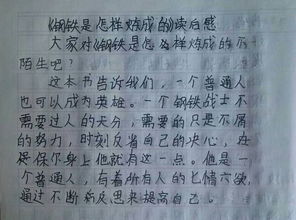 《钢铁是怎样炼成的》读后感
大家对《钢铁是怎么样炼成的》不
陌生吧?
这本书告诉我们,一个普通人
也可以成为英雄。一个钢铁战士不
需要过人的天分,需要的只是不屈
的努力,时刻反省自己的决心,在
保尔身上他就有这一点。他是一
个普通人,有着所有人的七情六欲,
通过不断的反思来提高自己。